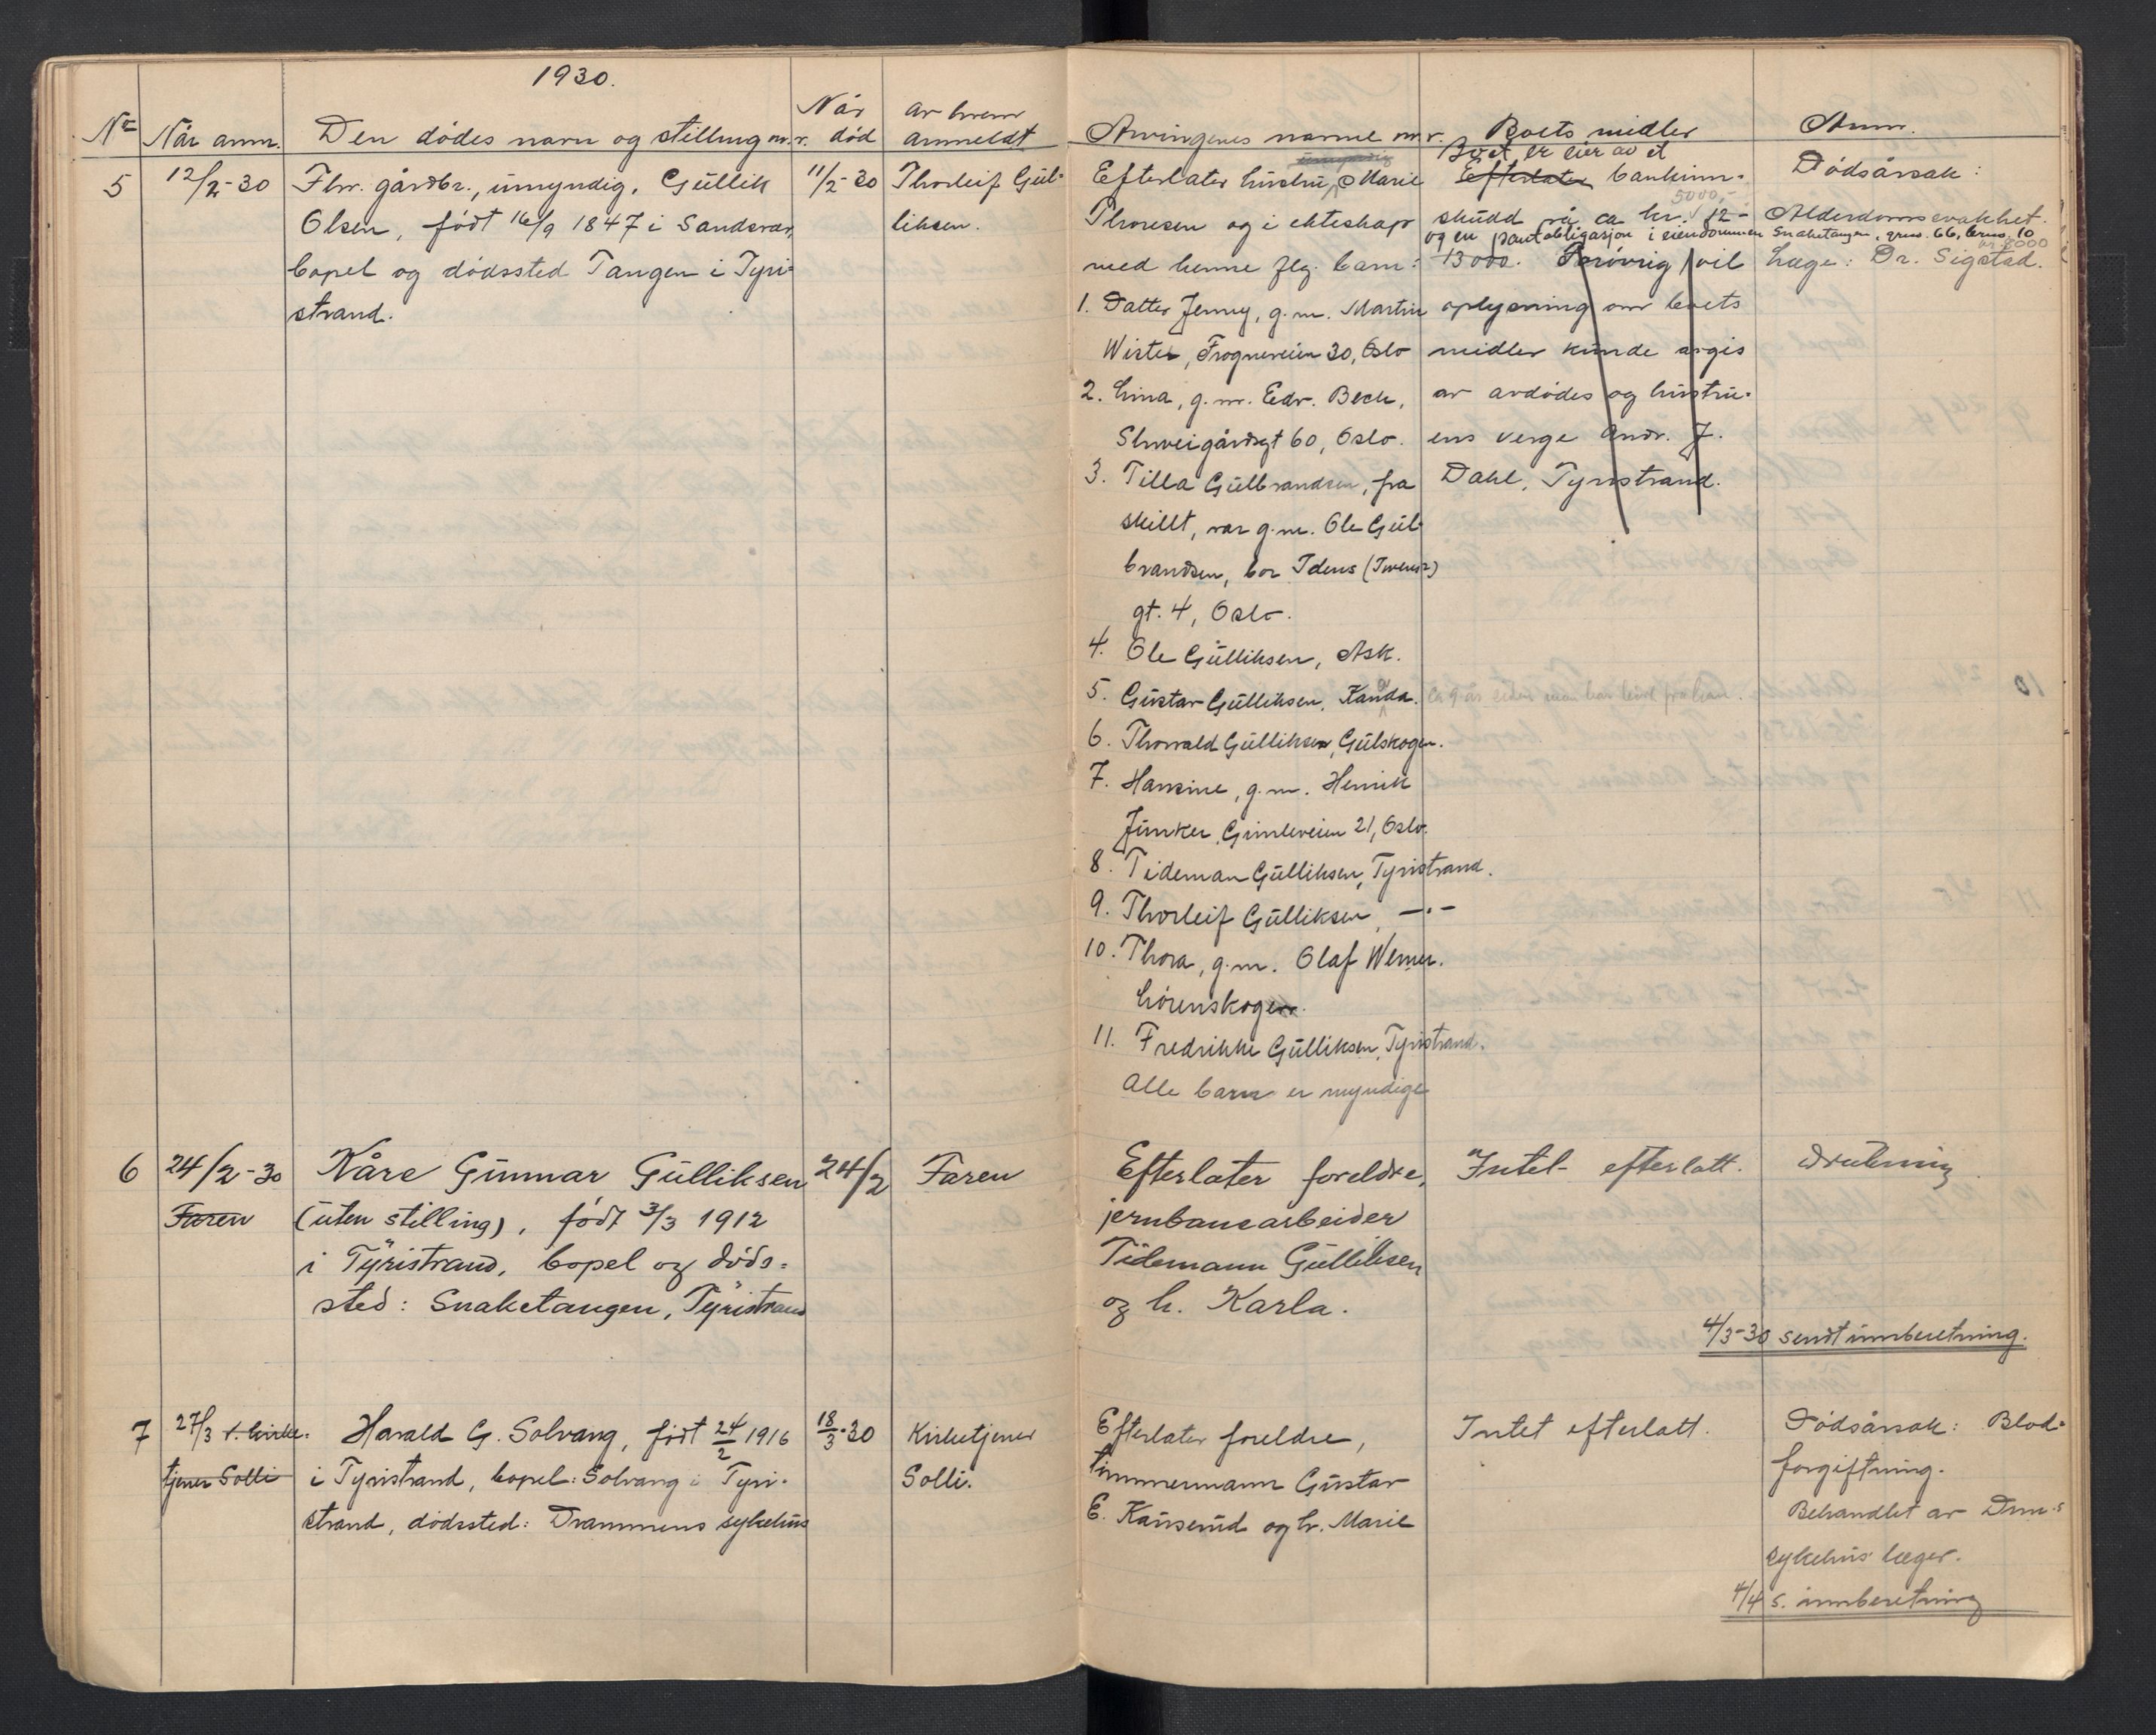 1930.
Nr. Når anm. Den dødes navn og stilling m.v. Når død av hvem anmeldt
5 12/2-30 Fhv. gårdbr., umyndig, Gullik 11/2-30 Thorleif Gul-
Olsen, født 16/9 1847 i Sandsvær, liksen.
bopel og dødssted Tangen i Tyri-
strand.
6 24/2-30 Kåre Gunnar Gulliksen 24/2 Faren
Faren (uten stilling), født 3/3 1912
i Tyristrand, bopel og døds-
sted: Snaketangen, Tyristrand
7 27/3 v. kirke- Harald G. Solvang, født 24/2 1916 18/3-30 Kirketjener
tjener Solli i Tyristrand, bopel: Solvang i Tyri- Solli.
strand, dødssted: Drammens sykehus
Arvingenes navne m.v. Boets midler Anm.
umyndig Boet er eier av et
Efterlater hustru, Marie Efterlater bankinn- Dødsårsak:
5000,-
Thoresen og i ekteskap skudd på ca kr. 12- Alderdomssvakhet.
og en pantobligasjon i eiendommen Snaketangen, grnr. 66, brnr. 10
kr 8000
med henne flg. barn: 13000. Forøvrig vil Læge: Dr. Sigstad.
1. Datter Jenny, g.m. Martin oplysning om boets
Wister, Frognerveien 30, Oslo midler kunde avgis
2. Lina, g.m. Edv. Beck, av avdødes og hustru-
Shweigårdsgt 60, Oslo. ens verge Andr. J.
3. Tilla Gulbrandsen, fra Dahl, Tyristrand.
skillt, var g.m. Ole Gul-
brandsen, bor Idens (Iwers?)
gt. 4, Oslo.
4. Ole Gulliksen, Ask.
5. Gustav Gulliksen, Kanada. ca 9 år siden man har hørt fra han.
6. Thorvald Gulliksen, Gulskogen.
7. Hansine, g.m. Henrik
Junker, Grimleveien 21, Oslo.
8. Tideman Gulliksen, Tyristrand.
9. Thorleif Gulliksen, -"-
10. Thora, g.m. Olaf Werner.
Lørenskogen.
11. Fredrikke Gulliksen, Tyristrand.
Alle barn er myndige
Efterlater foreldre, Intet efterlatt. Drukning
jernbanearbeider
Tidemann Gulliksen
og h. Karla.
4/3-30 sendt innberetning.
Efterlater foreldre, Intet efterlatt. Dødsårsak: Blod-
tømmermann Gustav forgiftning.
E. Kauserud og h. Marie Behandlet av Dm.s
sykehus læger.
4/4 s. innberetning